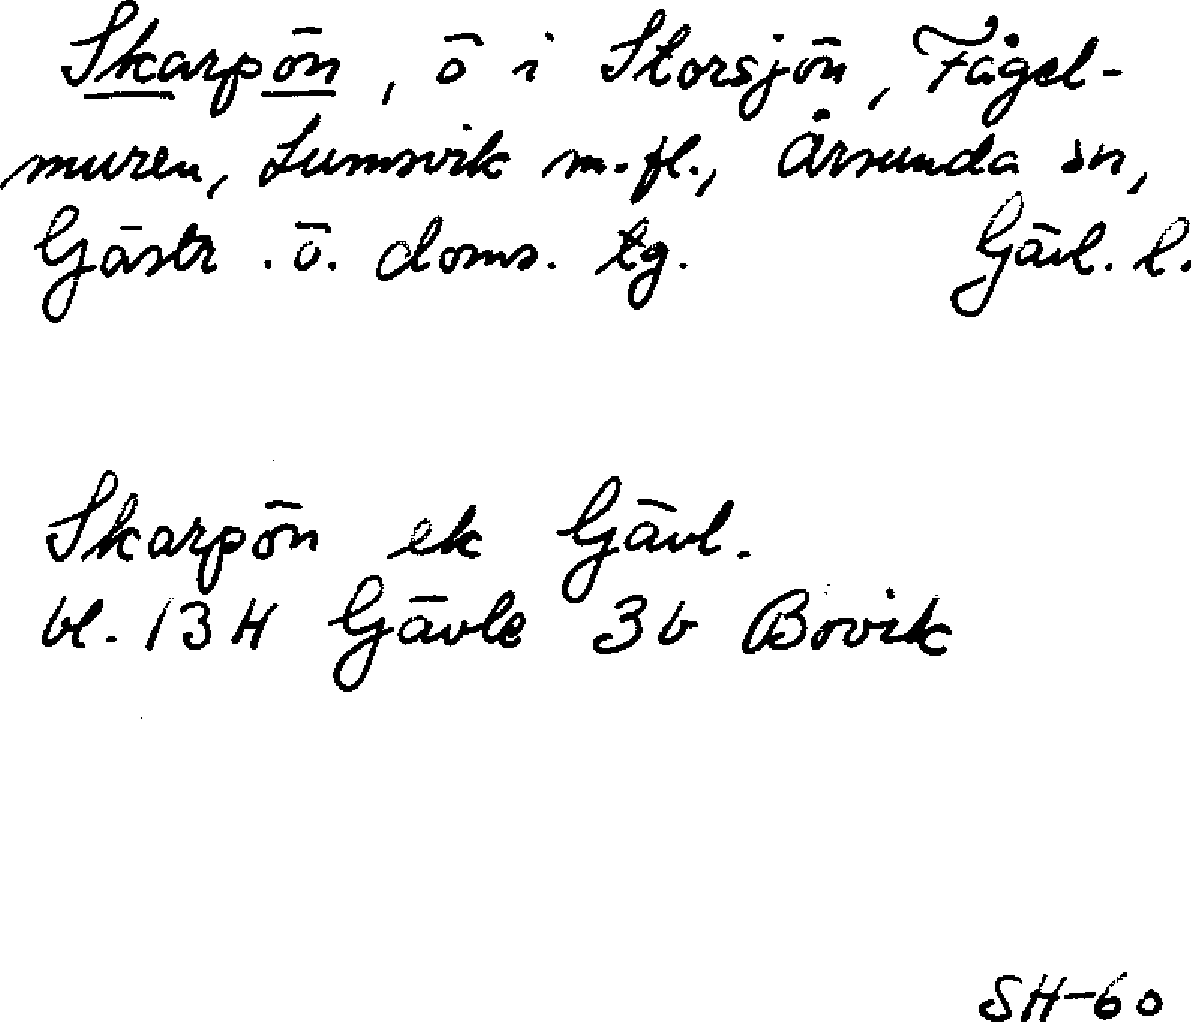 Skarpön, ö i Storsjön, Fågel-
muren, Lumsvik m.fl., Årsunda sn,
Gästr. ö. doms. tg. Gävl. l.
Skarpön ek Gävl.
bl. 13 H Gävle 3b Bovik
SH-60